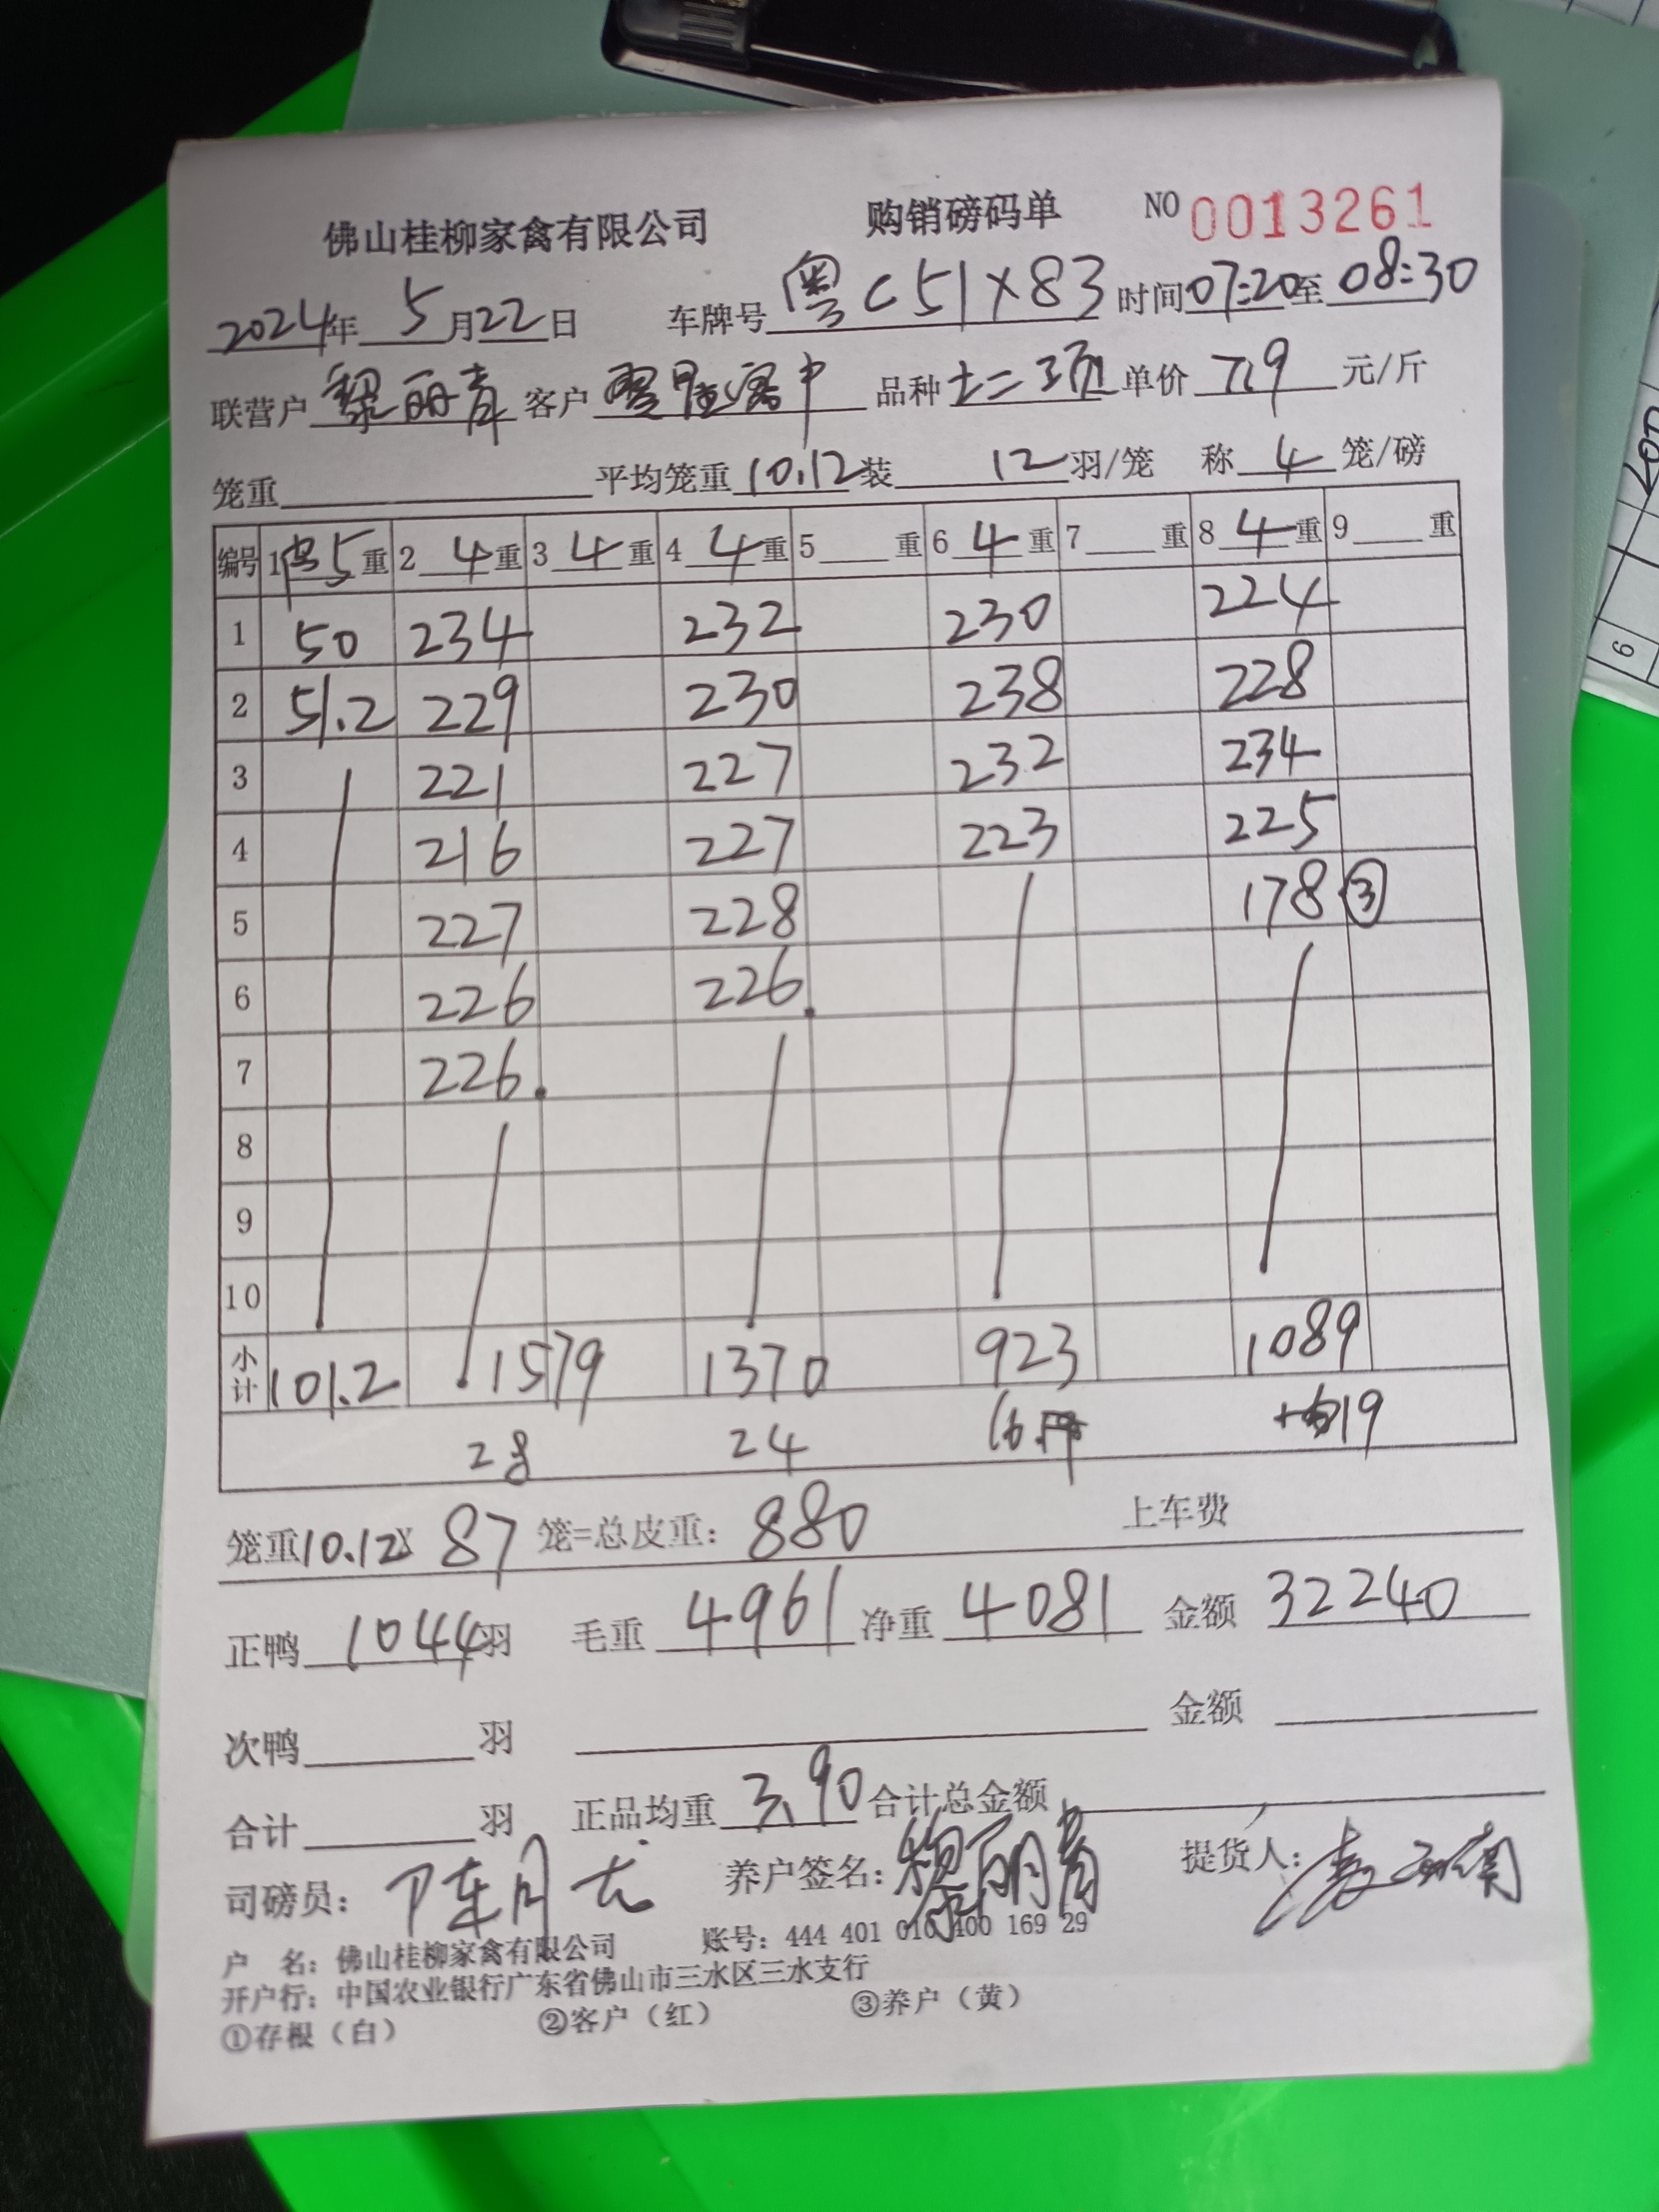 佛山桂柳家禽有限公司 购销磅码单 NO 0013261
2024年 5 月22日 车牌号 粤C51X83 时间07:20至 08:30
联营户 黎丽青 客户 品种 土二 单价 7.9 元/斤
笼重 平均笼重10.12装 12 羽/笼 称 4 笼/磅
编号 1 5 重 2 4 重 3 4 重 4 4 重 5 重 6 4 重 7 重 8 4 重 9 重
1 50 234 232 230 224
2 51.2 229 230 238 228
3 221 227 232 234
4 216 227 223 225
5 227 228 178 ③
6 226 226.
7 226.
8
9
10
小计 101.2 1579 1370 923 1089
28 24 16 19
笼重10.12X 87 笼=总皮重: 880 上车费
正鸭 1044羽 毛重 4961 净重 4081 金额 32240
次鸭 羽 金额
合计 羽 正品均重 3.90 合计总金额
司磅员: 养户签名: 黎丽青 提货人:
户 名: 佛山桂柳家禽有限公司 账号: 444 401 010 400 169 29
开户行: 中国农业银行广东省佛山市三水区三水支行
①存根(白) ②客户(红) ③养户(黄)
6